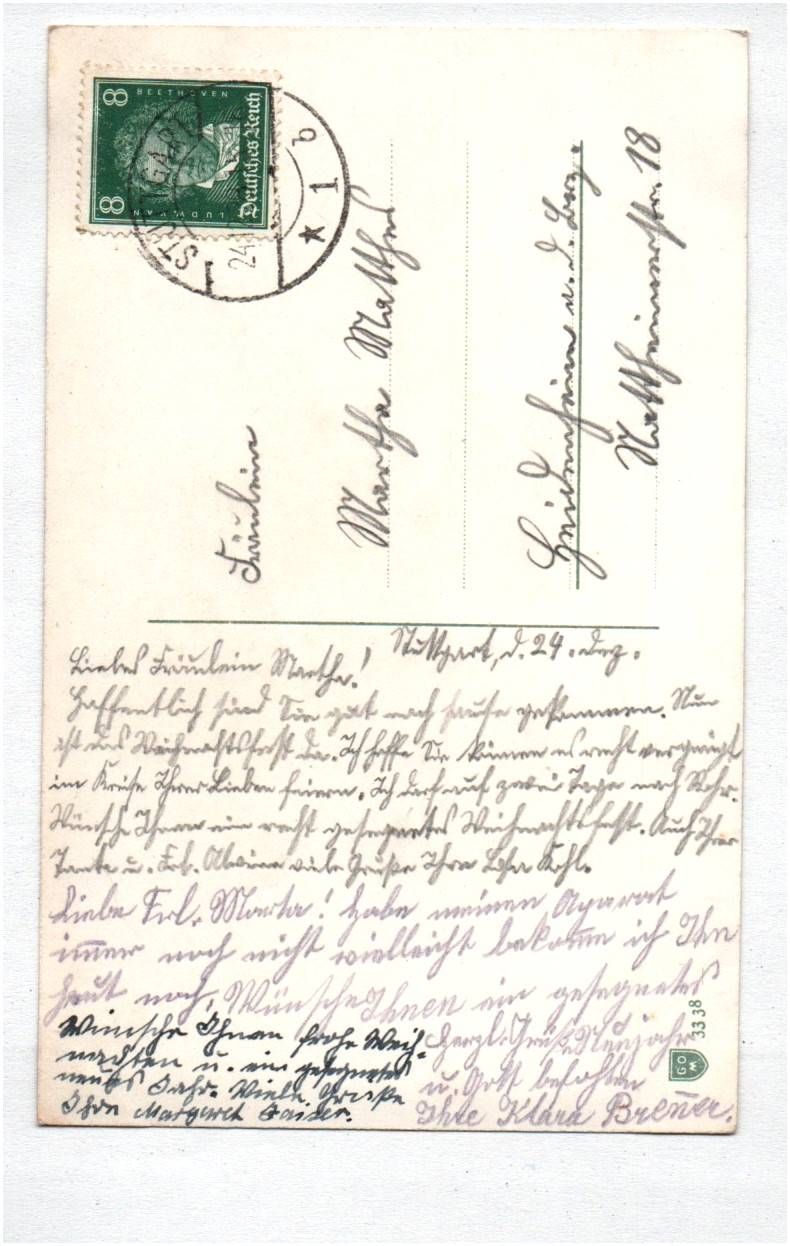 8 BEETHOVEN 8
LUDW. VAN
Deutsches Reich
STUTTGART
24.
* 1 b
Fräulein
Martha Matthes
Heidenheim a. d. Brz.
Nattheimerstr. 18
Stuttgart, d. 24. Dez.
Liebes Fräulein Martha!
Hoffentlich sind Sie gut nach Hause gekommen. Nun
ist das Weihnachtsfest da. Ich hoffe Sie können es recht vergnügt
im Kreise Ihrer Lieben feiern. Ich darf auf zwei Tage nach Rohr.
Wünsche Ihnen ein recht gesegnetes Weihnachtsfest. Auch Ihrer
Tante u. Frl. viele Grüße Ihre Kohl.
Liebe Frl. Marta! Habe meinen Aparat
immer noch nicht vielleicht bekomme ich Ihn
heut noch, Wünsche Ihnen ein gesegnetes
Neujahr
Herzl. Grüße
u. Gott befohlen
Ihre Klara Breñer.
Wünsche Ihnen frohe Weih-
nachten u. ein gesegnetes
neues Jahr. Viele Grüße
Ihre Margaret Kaiser.
GOM
3338